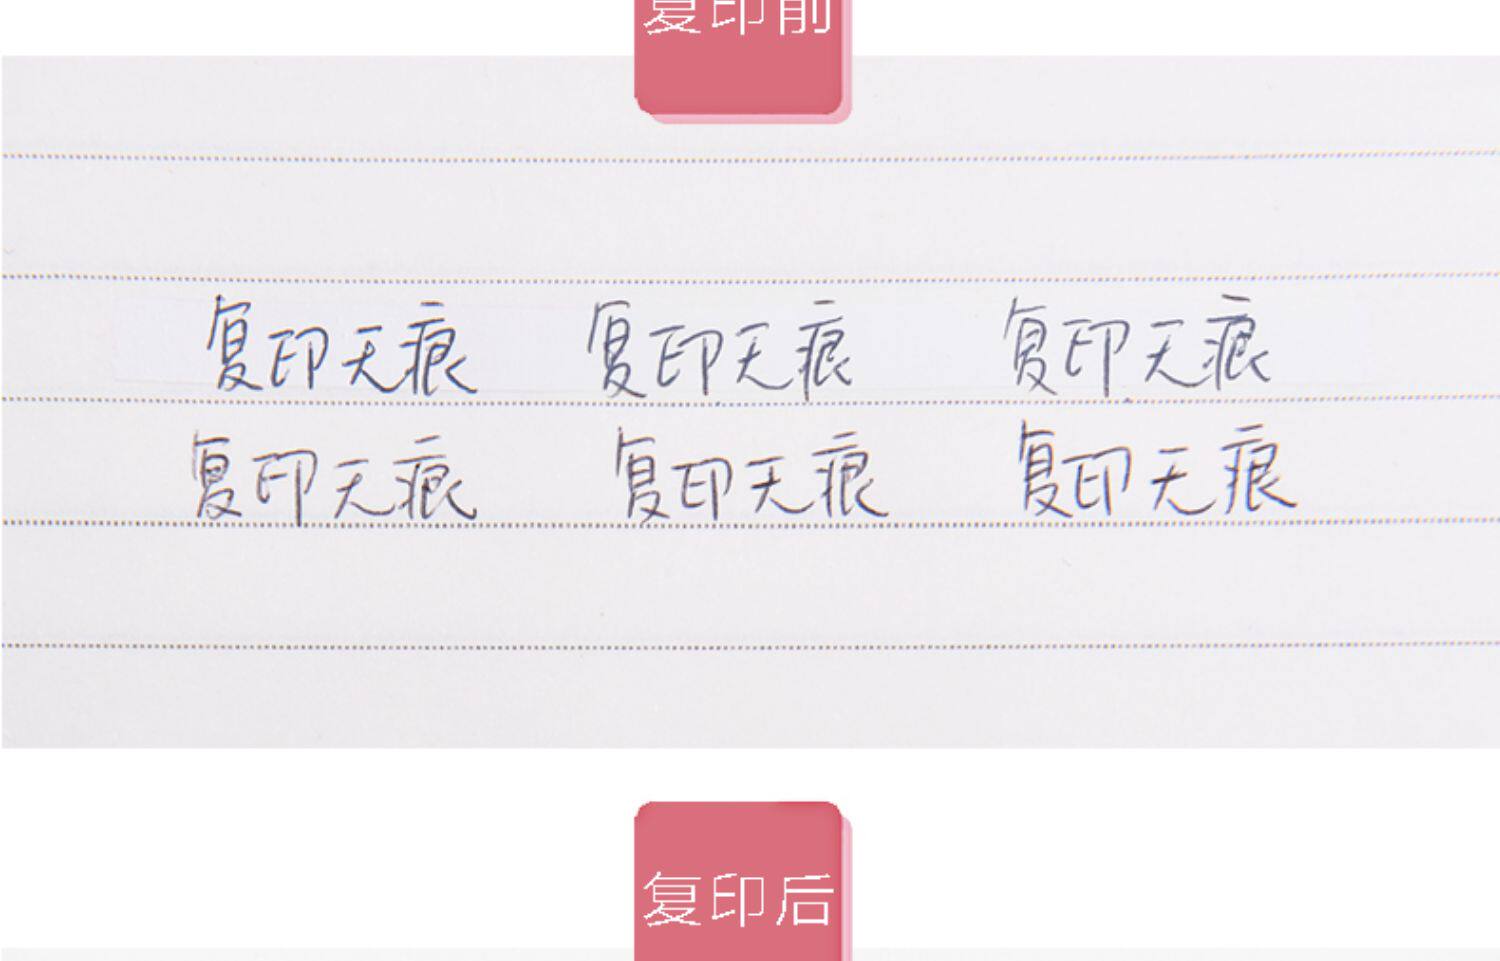 复印前
复印无痕 复印无痕 复印无痕
复印无痕 复印无痕 复印无痕
复印后